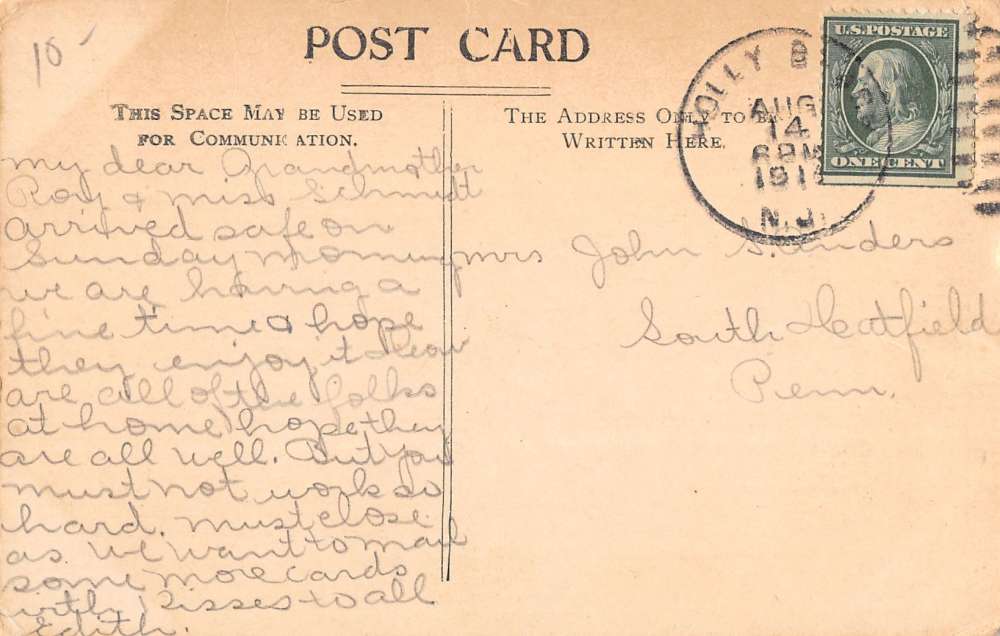 10 -
POST CARD
THIS SPACE MAY BE USED
FOR COMMUNICATION.
THE ADDRESS ONLY TO BE
WRITTEN HERE.
HOLLY B
AUG
14
6 PM
191
N.J.
U.S. POSTAGE
ONE CENT
My dear Grandmother
Roy & miss Schmidt
arrived safe on
Sunday morning
we are having a
fine time & hope
they enjoy it How
are all of the folks
at home hope they
are all well. But you
must not work so
hard. must close
as we want to mail
some more cards
with kisses to all
Edith.
Mrs John S. Anders
South Hatfield
Penn.